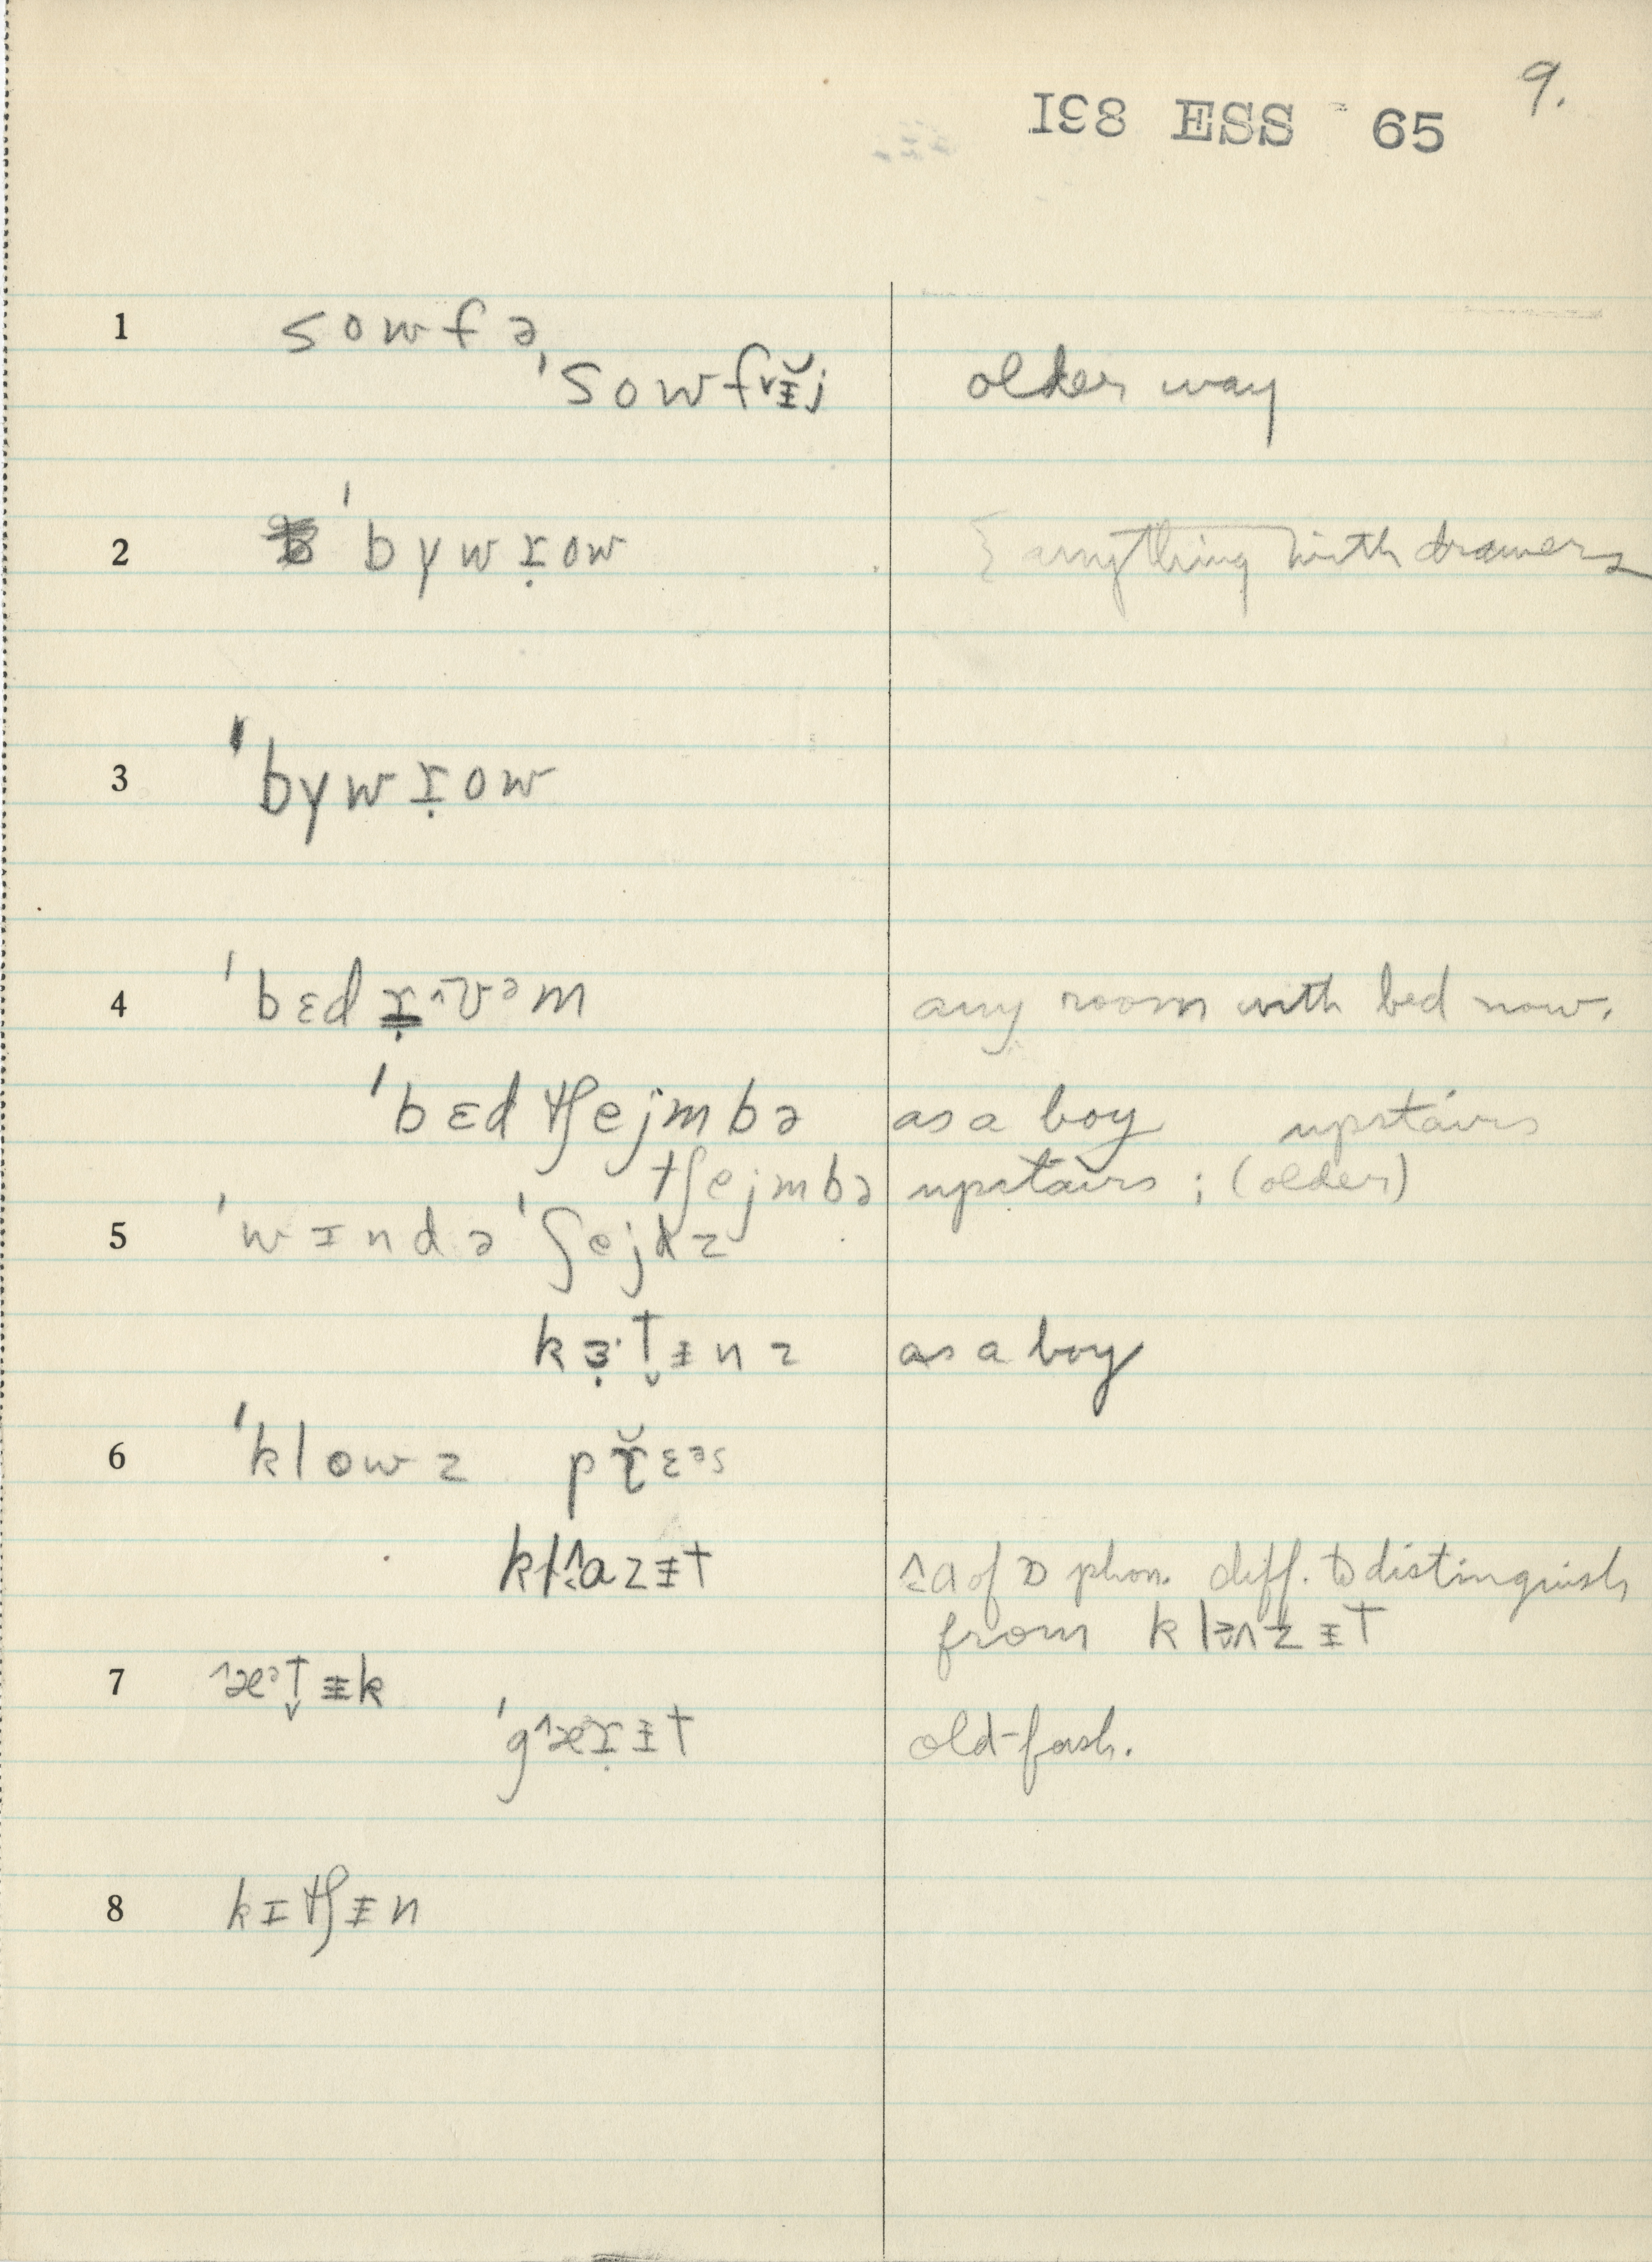 9.
I98 ESS 65
1 sowfə
'sowfᵛɪ̵̆j older way
2 'bγwɹ̣ow anything with drawers
3 'bγwɹ̣ow
4 'bɛd ɹ̣^ʊᵊm any room with bed now.
'bɛdtʃejmbə as a boy upstairs
tʃejmbə upstairs ; (older)
5 'wɪndə 'ʃejdz
kɜ̣·t̬ɪ̵nz as a boy
6 'klowz prɛᵊs
kl^ɑzɪ̵t ^ɑ of ɒ phon. diff. to distinguish
from klɔ^zɪ̵t
7 ^æᵊt̬ɪ̵k
'g^æɹ̣ɪ̵t old-fash.
8 kɪtʃɪ̵n